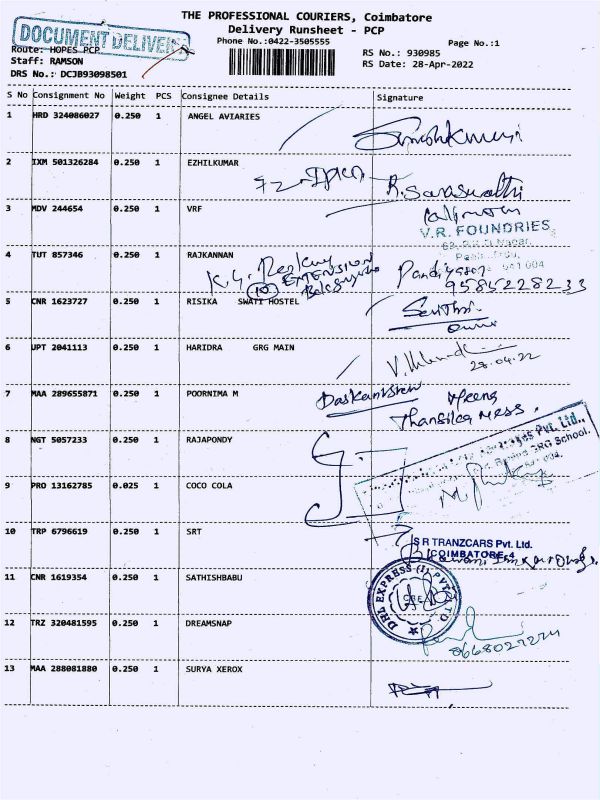 THE PROFESSIONAL COURIERS, Coimbatore
Delivery Runsheet - PCP
Phone No.:0422-3505555
Page No.:1
DOCUMENT DELIVERED
Route: HOPES PCP
Staff: RAMSON
DRS No.: DCJB93098501
RS No.: 930985
RS Date: 28-Apr-2022
S No Consignment No Weight PCS Consignee Details Signature
1 HRD 324086027 0.250 1 ANGEL AVIARIES
2 IXM 501326284 0.250 1 EZHILKUMAR
R. Saraswathi
3 MDV 244654 0.250 1 VRF
V.R. FOUNDRIES
4 TUT 857346 0.250 1 RAJKANNAN
EXTENSION
10
Pandiyan
9585228233
5 CNR 1623727 0.250 1 RISIKA SWATI HOSTEL
6 UPT 2041113 0.250 1 HARIDRA GRG MAIN
28.04.22
7 MAA 289655871 0.250 1 POORNIMA M
Thansilca Mess.
8 NGT 5057233 0.250 1 RAJAPONDY
Pvt. Ltd.,
Behind GRG School.
9 PRO 13162785 0.025 1 COCO COLA
10 TRP 6796619 0.250 1 SRT
S R TRANZCARS Pvt. Ltd.
COIMBATORE-4
11 CNR 1619354 0.250 1 SATHISHBABU
DHL EXPRESS (I) PVT. LTD.
12 TRZ 320481595 0.250 1 DREAMSNAP
13 MAA 288081880 0.250 1 SURYA XEROX